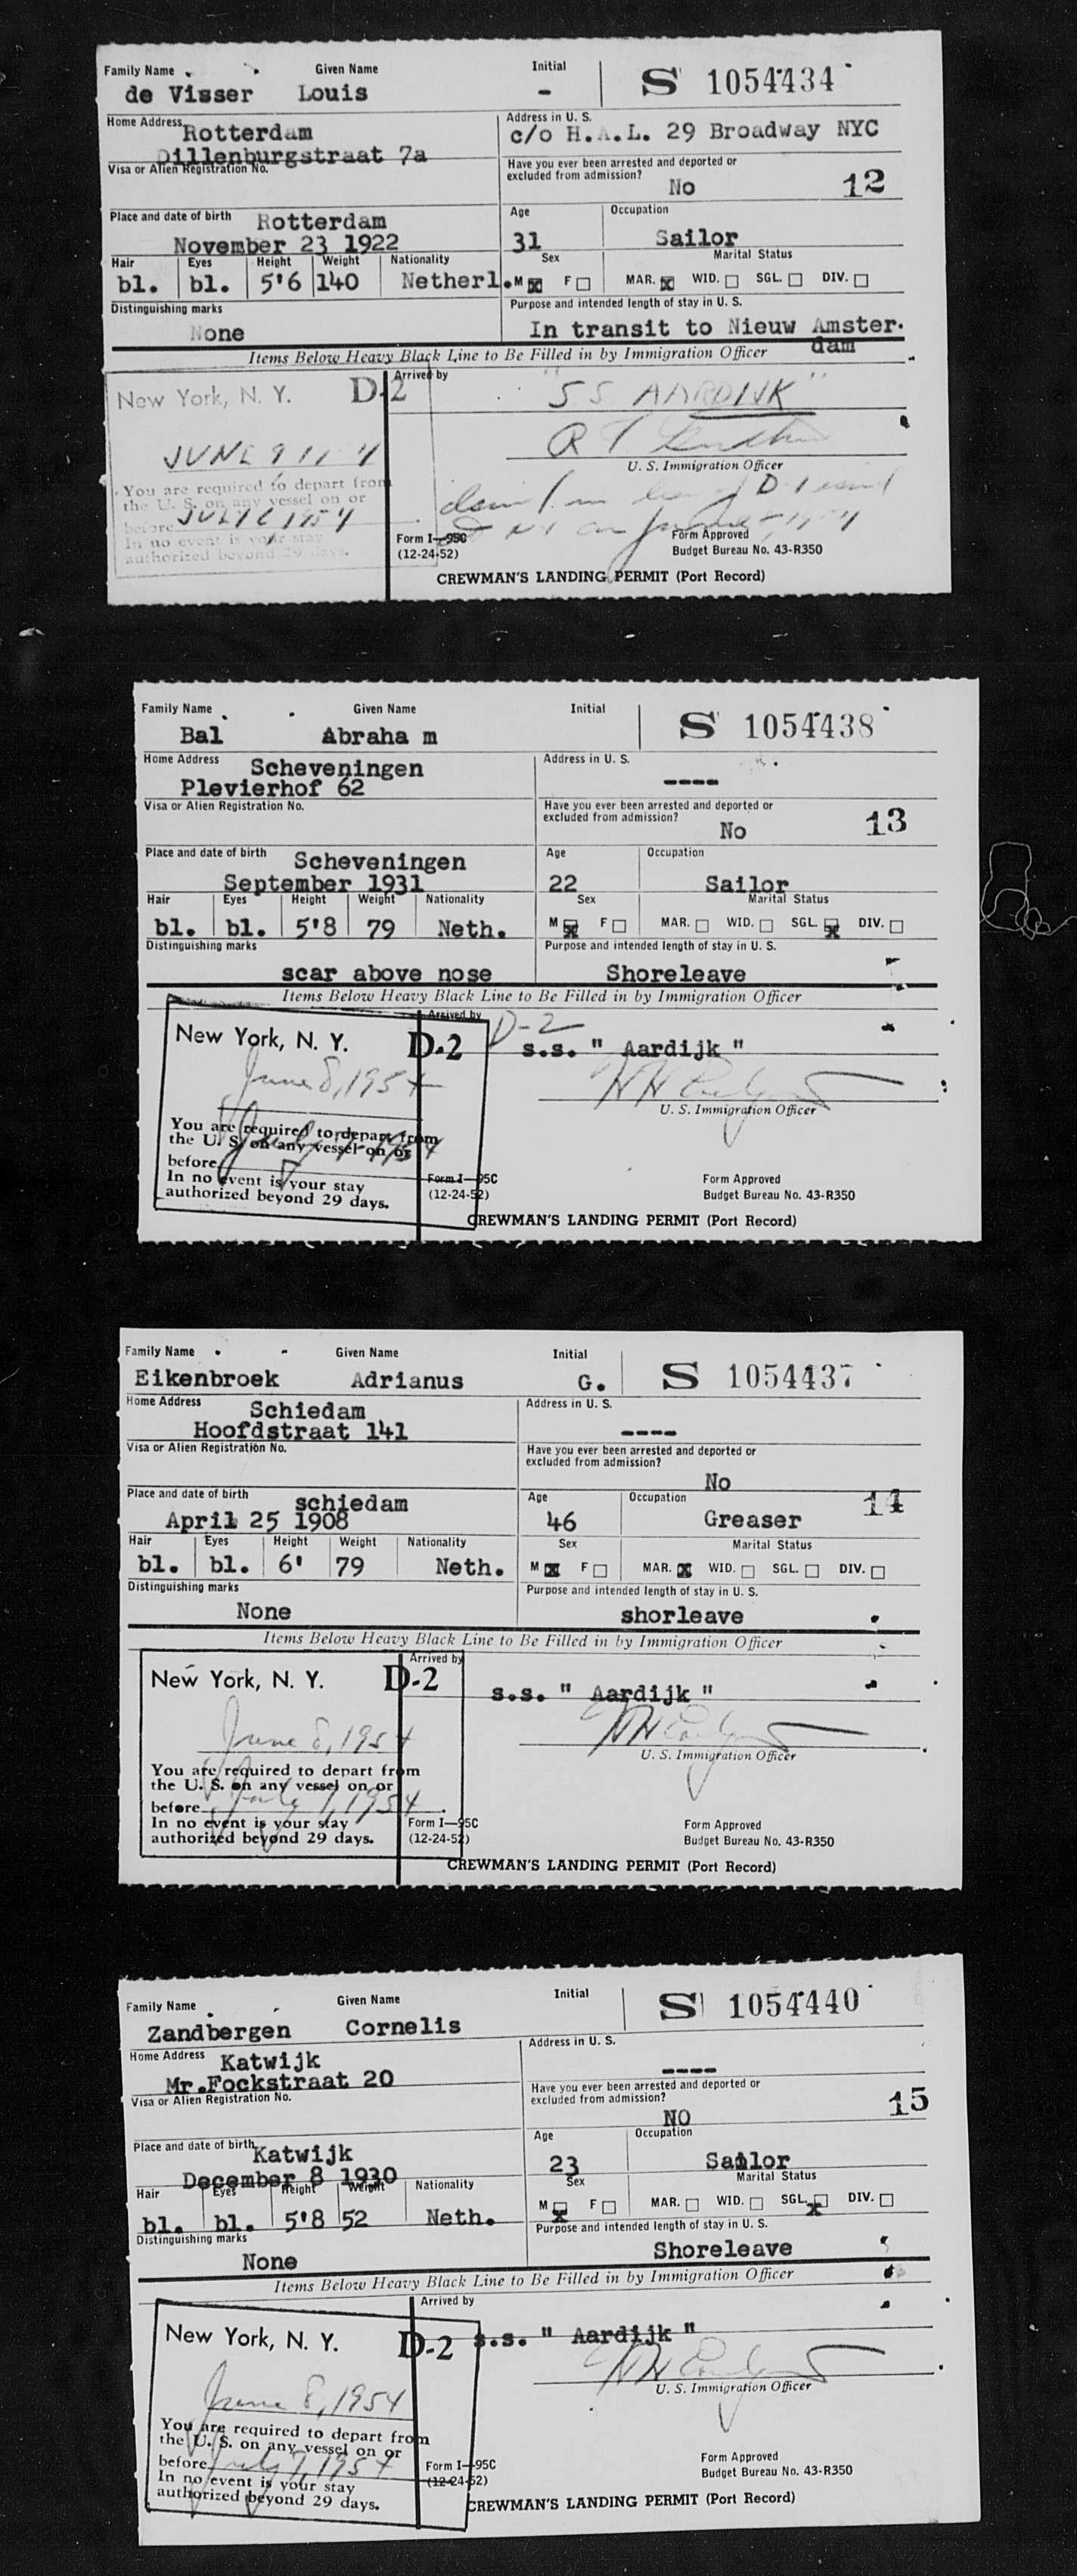 Family Name Given Name Initial S 1054434
de Visser Louis -
Home Address Rotterdam Address in U. S.
Dillenburgstraat 7a c/o H.A.L. 29 Broadway NYC
Visa or Alien Registration No. Have you ever been arrested and deported or
excluded from admission? No 12
Place and date of birth Rotterdam Age Occupation
November 23 1922 31 Sailor
Hair Eyes Height Weight Nationality Sex Marital Status
bl. bl. 5'6 140 Netherl. M F MAR. WID. SGL. DIV.
Distinguishing marks Purpose and intended length of stay in U. S.
None In transit to Nieuw Amster-
dam
Items Below Heavy Black Line to Be Filled in by Immigration Officer
New York, N. Y. D-2 Arrived by "SS AARDIJK"
JUNE 9
U. S. Immigration Officer
You are required to depart from
the U. S. on any vessel on or
before JULY 1954
In no event is your stay
authorized beyond 29 days.
Form I-95C
(12-24-52)
Form Approved
Budget Bureau No. 43-R350
CREWMAN'S LANDING PERMIT (Port Record)
Family Name Given Name Initial S 1054438
Bal Abraha m
Home Address Scheveningen Address in U. S.
Plevierhof 62 ----
Visa or Alien Registration No. Have you ever been arrested and deported or
excluded from admission? No 13
Place and date of birth Scheveningen Age Occupation
September 1931 22 Sailor
Hair Eyes Height Weight Nationality Sex Marital Status
bl. bl. 5'8 79 Neth. M F MAR. WID. SGL. DIV.
Distinguishing marks Purpose and intended length of stay in U. S.
scar above nose Shoreleave
Items Below Heavy Black Line to Be Filled in by Immigration Officer
Arrived by D-2
New York, N. Y. D-2 s.s. " Aardijk "
June 8, 1954
U. S. Immigration Officer
You are required to depart from
the U. S. on any vessel on or
before July 7, 1954
In no event is your stay
authorized beyond 29 days.
Form I-95C
(12-24-52)
Form Approved
Budget Bureau No. 43-R350
CREWMAN'S LANDING PERMIT (Port Record)
Family Name Given Name Initial S 1054437
Eikenbroek Adrianus G.
Home Address Schiedam Address in U. S.
Hoofdstraat 141 ----
Visa or Alien Registration No. Have you ever been arrested and deported or
excluded from admission? No
Place and date of birth schiedam Age Occupation 14
April 25 1908 46 Greaser
Hair Eyes Height Weight Nationality Sex Marital Status
bl. bl. 6' 79 Neth. M F MAR. WID. SGL. DIV.
Distinguishing marks Purpose and intended length of stay in U. S.
None shorleave
Items Below Heavy Black Line to Be Filled in by Immigration Officer
Arrived by
New York, N. Y. D-2 s.s. " Aardijk "
June 8, 1954
U. S. Immigration Officer
You are required to depart from
the U. S. on any vessel on or
before July 7, 1954
In no event is your stay
authorized beyond 29 days.
Form I-95C
(12-24-52)
Form Approved
Budget Bureau No. 43-R350
CREWMAN'S LANDING PERMIT (Port Record)
Family Name Given Name Initial S 1054440
Zandbergen Cornelis
Home Address Katwijk Address in U. S.
Mr.Fockstraat 20 ----
Visa or Alien Registration No. Have you ever been arrested and deported or
excluded from admission? NO 15
Place and date of birth Katwijk Age Occupation
December 8 1930 23 Sailor
Hair Eyes Height Weight Nationality Sex Marital Status
bl. bl. 5'8 52 Neth. M F MAR. WID. SGL. DIV.
Distinguishing marks Purpose and intended length of stay in U. S.
None Shoreleave
Items Below Heavy Black Line to Be Filled in by Immigration Officer
Arrived by
New York, N. Y. D-2 s.s. " Aardijk "
June 8, 1954
U. S. Immigration Officer
You are required to depart from
the U. S. on any vessel on or
before July 7, 1954
In no event is your stay
authorized beyond 29 days.
Form I-95C
(12-24-52)
Form Approved
Budget Bureau No. 43-R350
CREWMAN'S LANDING PERMIT (Port Record)